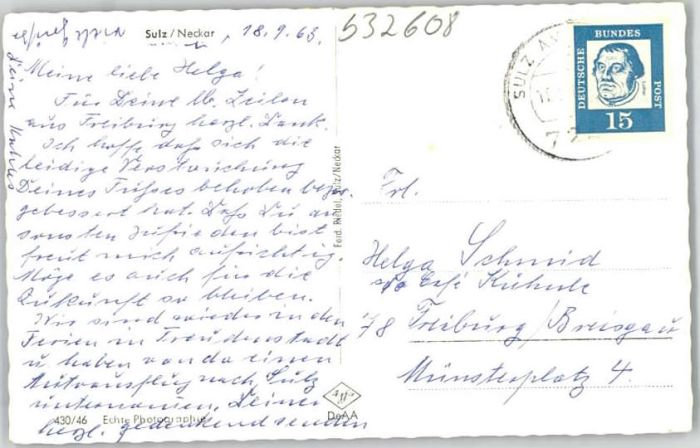 Sulz/Neckar
18.9.63.
532608
Meine liebe Helga!
Für Deine lb. Zeilen
aus Freiburg herzl. Dank.
Ich hoffe daß sich die
leidige Verstauchung
Deines Fußes behoben bezw.
gebessert hat. Daß Du an-
sonsten zufrieden bist
freut mich aufrichtig.
Möge es auch für die
Zukunft so bleiben.
Wir sind wieder in den
Ferien in Freudenstadt
u. haben von da einen
Autoausflug nach Sulz
unternommen. Deiner
herzl. gedenkend senden
430/46 Echte Photographie
Ferd. Riedel, Sulz/Neckar
DeAA
SULZ AM
DEUTSCHE BUNDES POST
15
Frl.
Helga Schmid
c/o Café Kühnle
78 Freiburg/Breisgau
Münsterplatz 4.